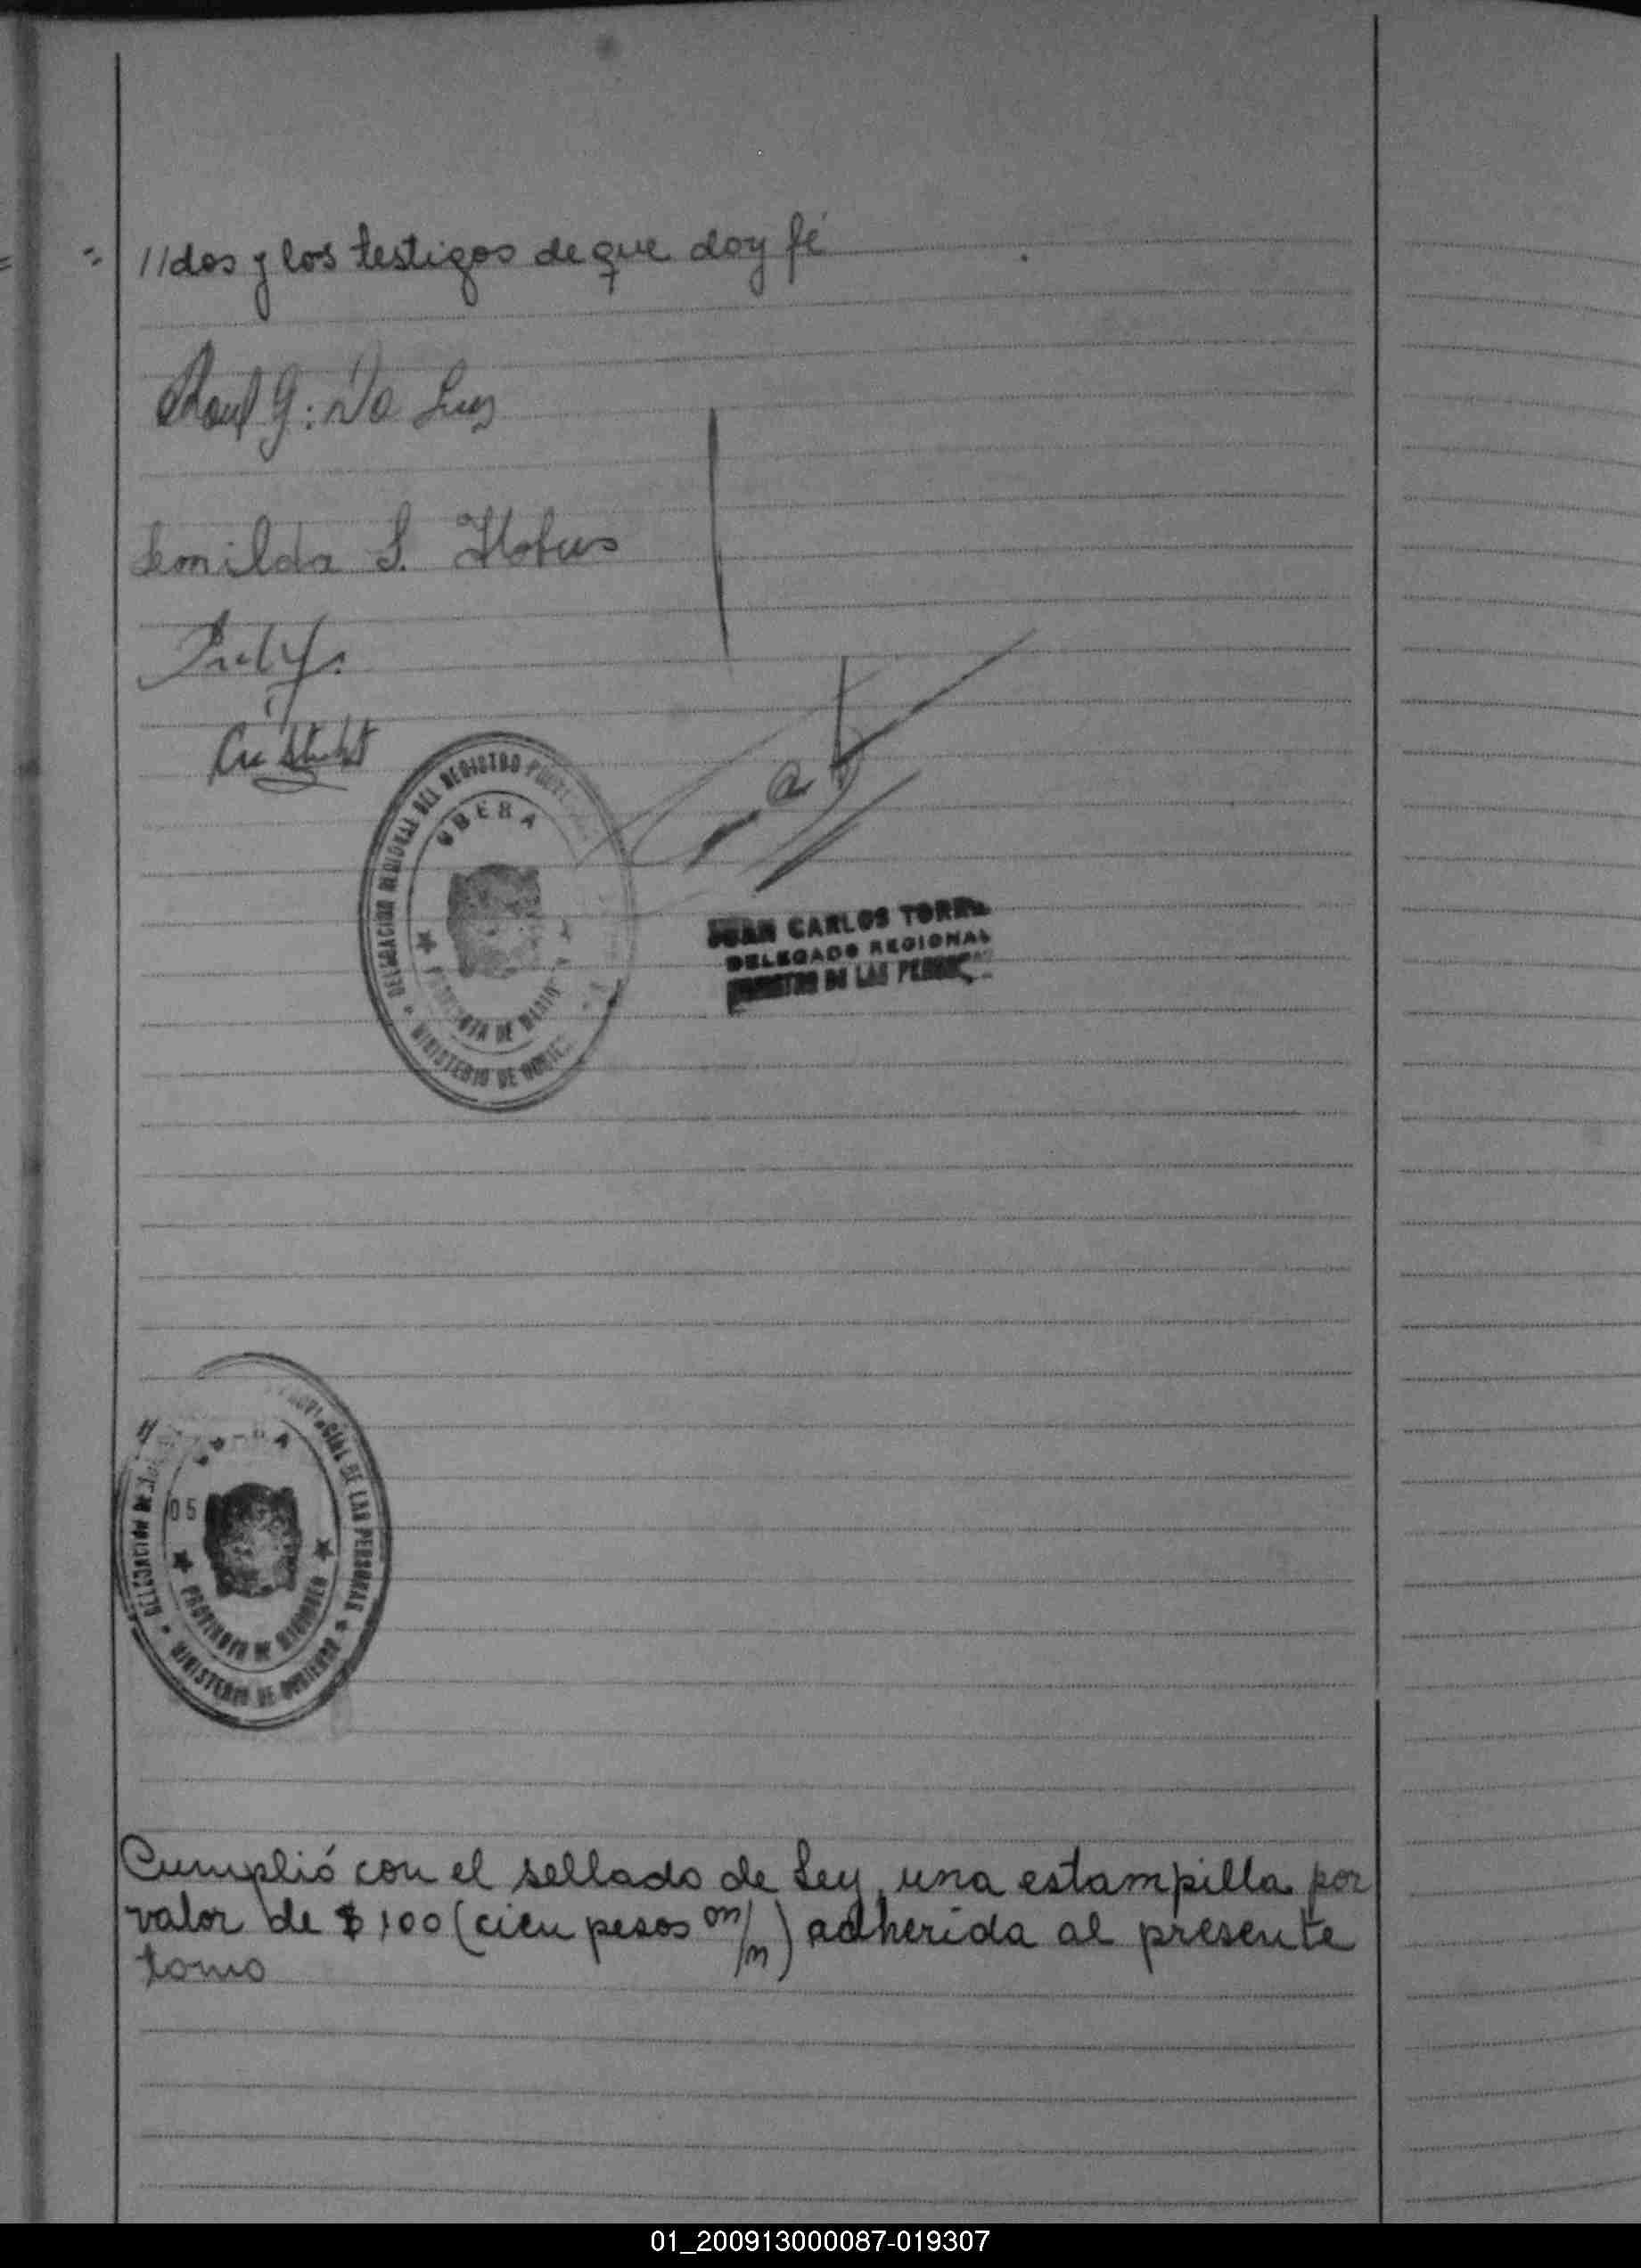 //dos y los testigos de que doy fé
Raul G. Da Luz
Semilda S. Hobus
DELEGACION REGIONAL DEL REGISTRO
OBERA
PROVINCIA DE MISIONES
MINISTERIO DE GOBIERNO
JUAN CARLOS TORRES
DELEGADO REGIONAL
REGISTRO DE LAS PERSONAS
PROVINCIAL DE LAS PERSONAS
DELEGACION
05
PROVINCIA DE MISIONES
MINISTERIO DE GOBIERNO
Cumplió con el sellado de Ley, una estampilla por
valor de $ 100 (cien pesos m/n) adherida al presente
tomo
01_200913000087-019307